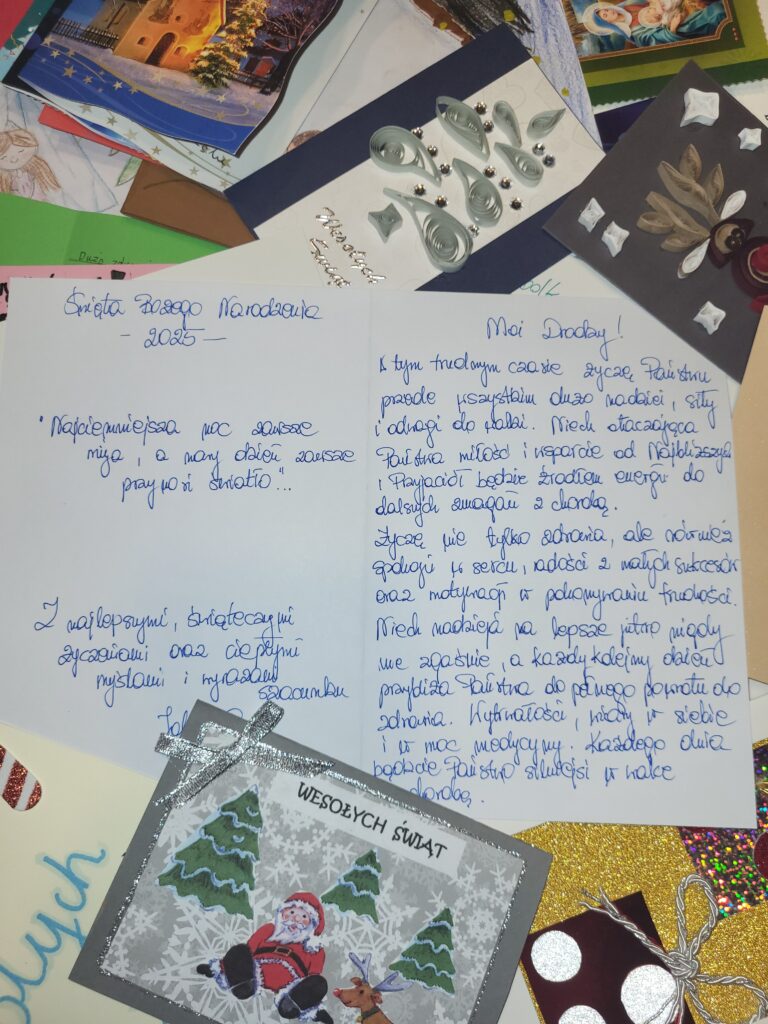 Wesołych
Świąt
Święta Bożego Narodzenia
- 2025 -
"Najciemniejsza noc zawsze
mija, a nowy dzień zawsze
przynosi światło"...
Z najlepszymi, świątecznymi
życzeniami oraz ciepłymi
myślami i wyrazami
szacunku
Moi Drodzy!
W tym trudnym czasie życzę Państwu
przede wszystkim dużo nadziei, siły
i odwagi do walki. Niech otaczająca
Państwa miłość i wsparcie od Najbliższych
i Przyjaciół będzie źródłem energii do
dalszych zmagań z chorobą.
Życzę nie tylko zdrowia, ale również
spokoju w sercu, radości z małych sukcesów
oraz motywacji w pokonywaniu trudności.
Niech nadzieja na lepsze jutro nigdy
nie zgaśnie, a każdy kolejny dzień
przybliża Państwa do pełnego powrotu do
zdrowia. Wytrwałości, wiary w siebie
i w moc medycyny. Każdego dnia
bądźcie Państwo silniejsi w walce
z chorobą.
WESOŁYCH ŚWIĄT
ołych